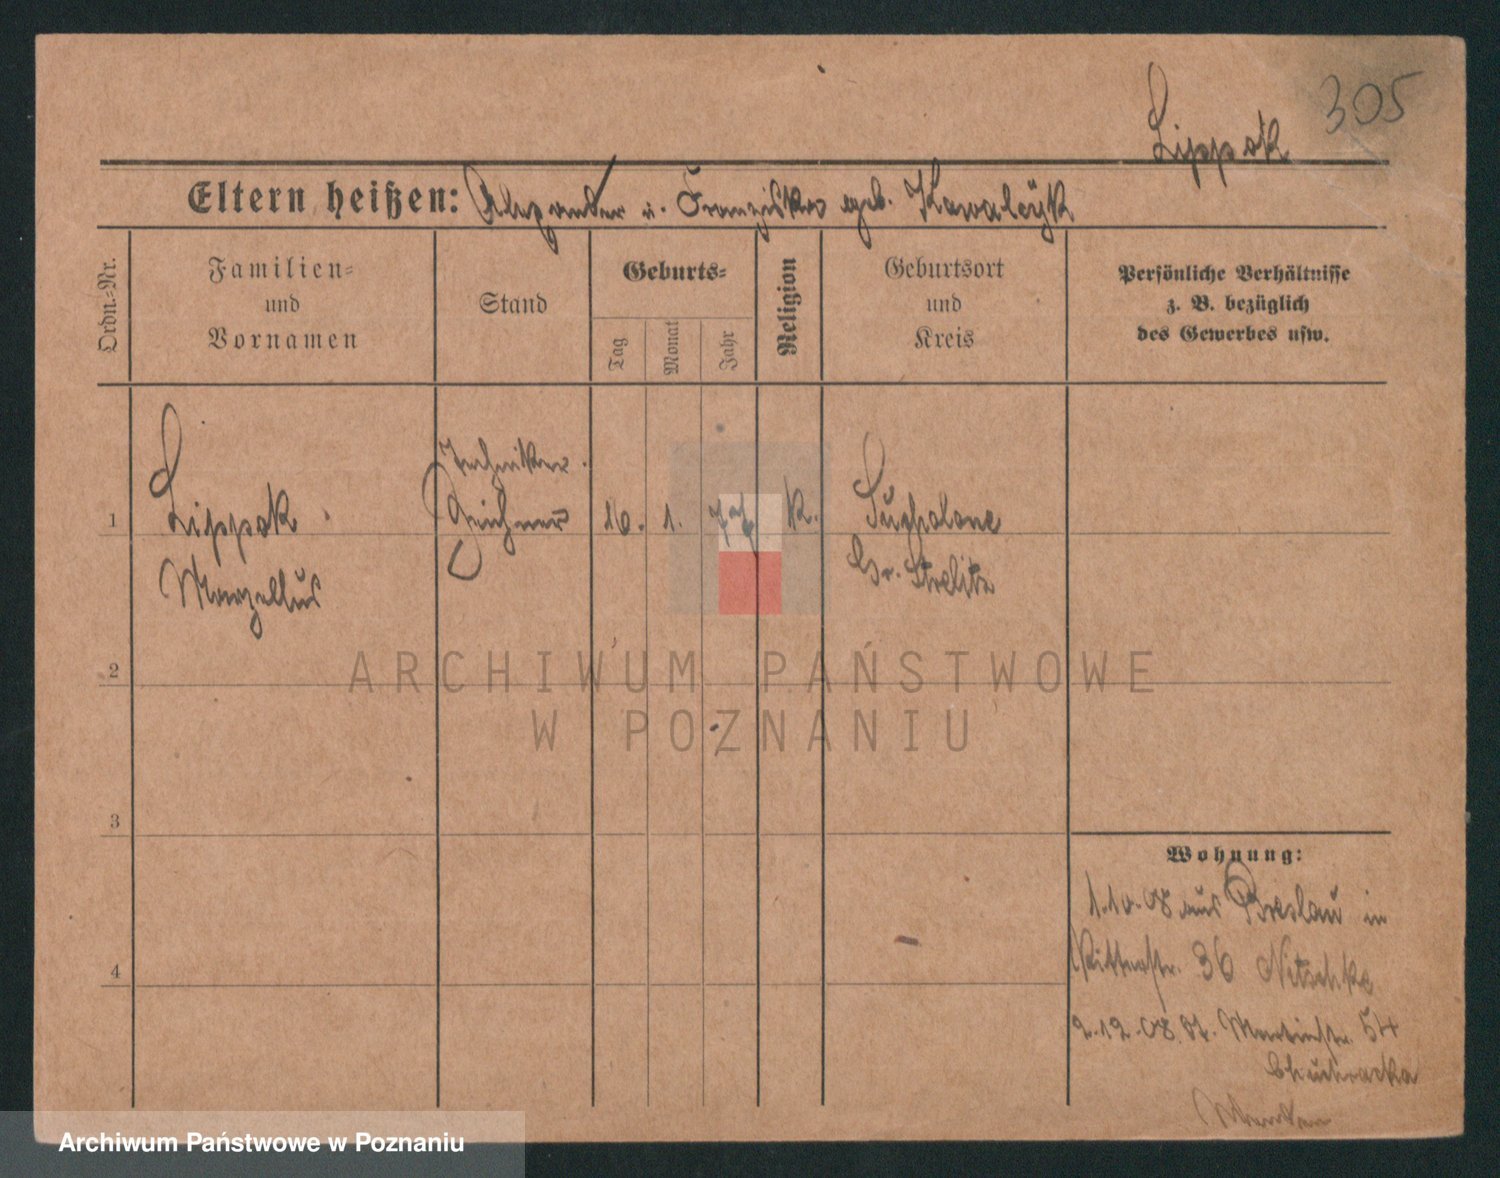 305
Lippok
Eltern heißen: Alexander u. Franziska geb. Kawalczyk
Ordn.-Nr.
Familien-
und
Vornamen
Stand
Geburts-
Tag
Monat
Jahr
Religion
Geburtsort
und
Kreis
Persönliche Verhältnisse
z. B. bezüglich
des Gewerbes usw.
Techniker
1 Lippok Zeichner 16. 1. 77 K. Sucholona
Marzellus Gr. Strelitz
2
ARCHIWUM PAŃSTWOWE
W POZNANIU
3
Wohnung:
1.10.08 aus Breslau in
Ritterstr. 36 Nitschke
4
2.12.08 St. Martinstr. 54
Archiwum Państwowe w Poznaniu